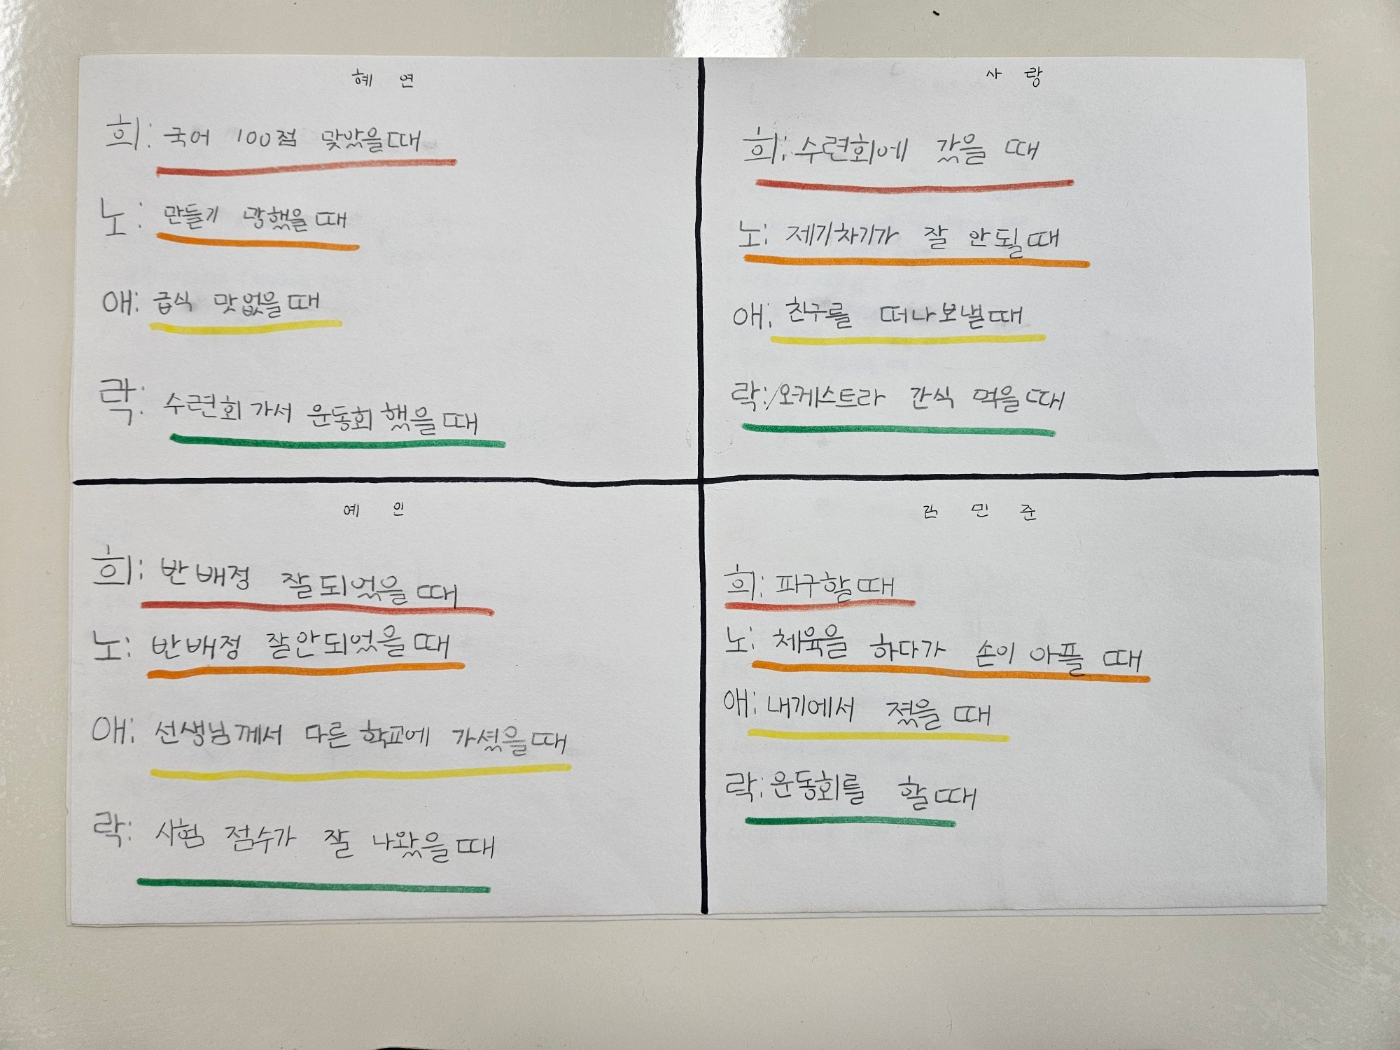 혜 연
희: 국어 100점 맞았을 때
노: 만들기 망했을 때
애: 급식 맛없을 때
락: 수련회 가서 운동회 했을 때
사 랑
희: 수련회에 갔을 때
노: 제기차기가 잘 안될 때
애: 친구를 떠나보낼 때
락: 오케스트라 간식 먹을 때
예 인
희: 반 배정 잘 되었을 때
노: 반 배정 잘 안되었을 때
애: 선생님께서 다른 학교에 가셨을 때
락: 시험 점수가 잘 나왔을 때
민 준
희: 피구할 때
노: 체육을 하다가 손이 아플 때
애: 내기에서 졌을 때
락: 운동회를 할 때